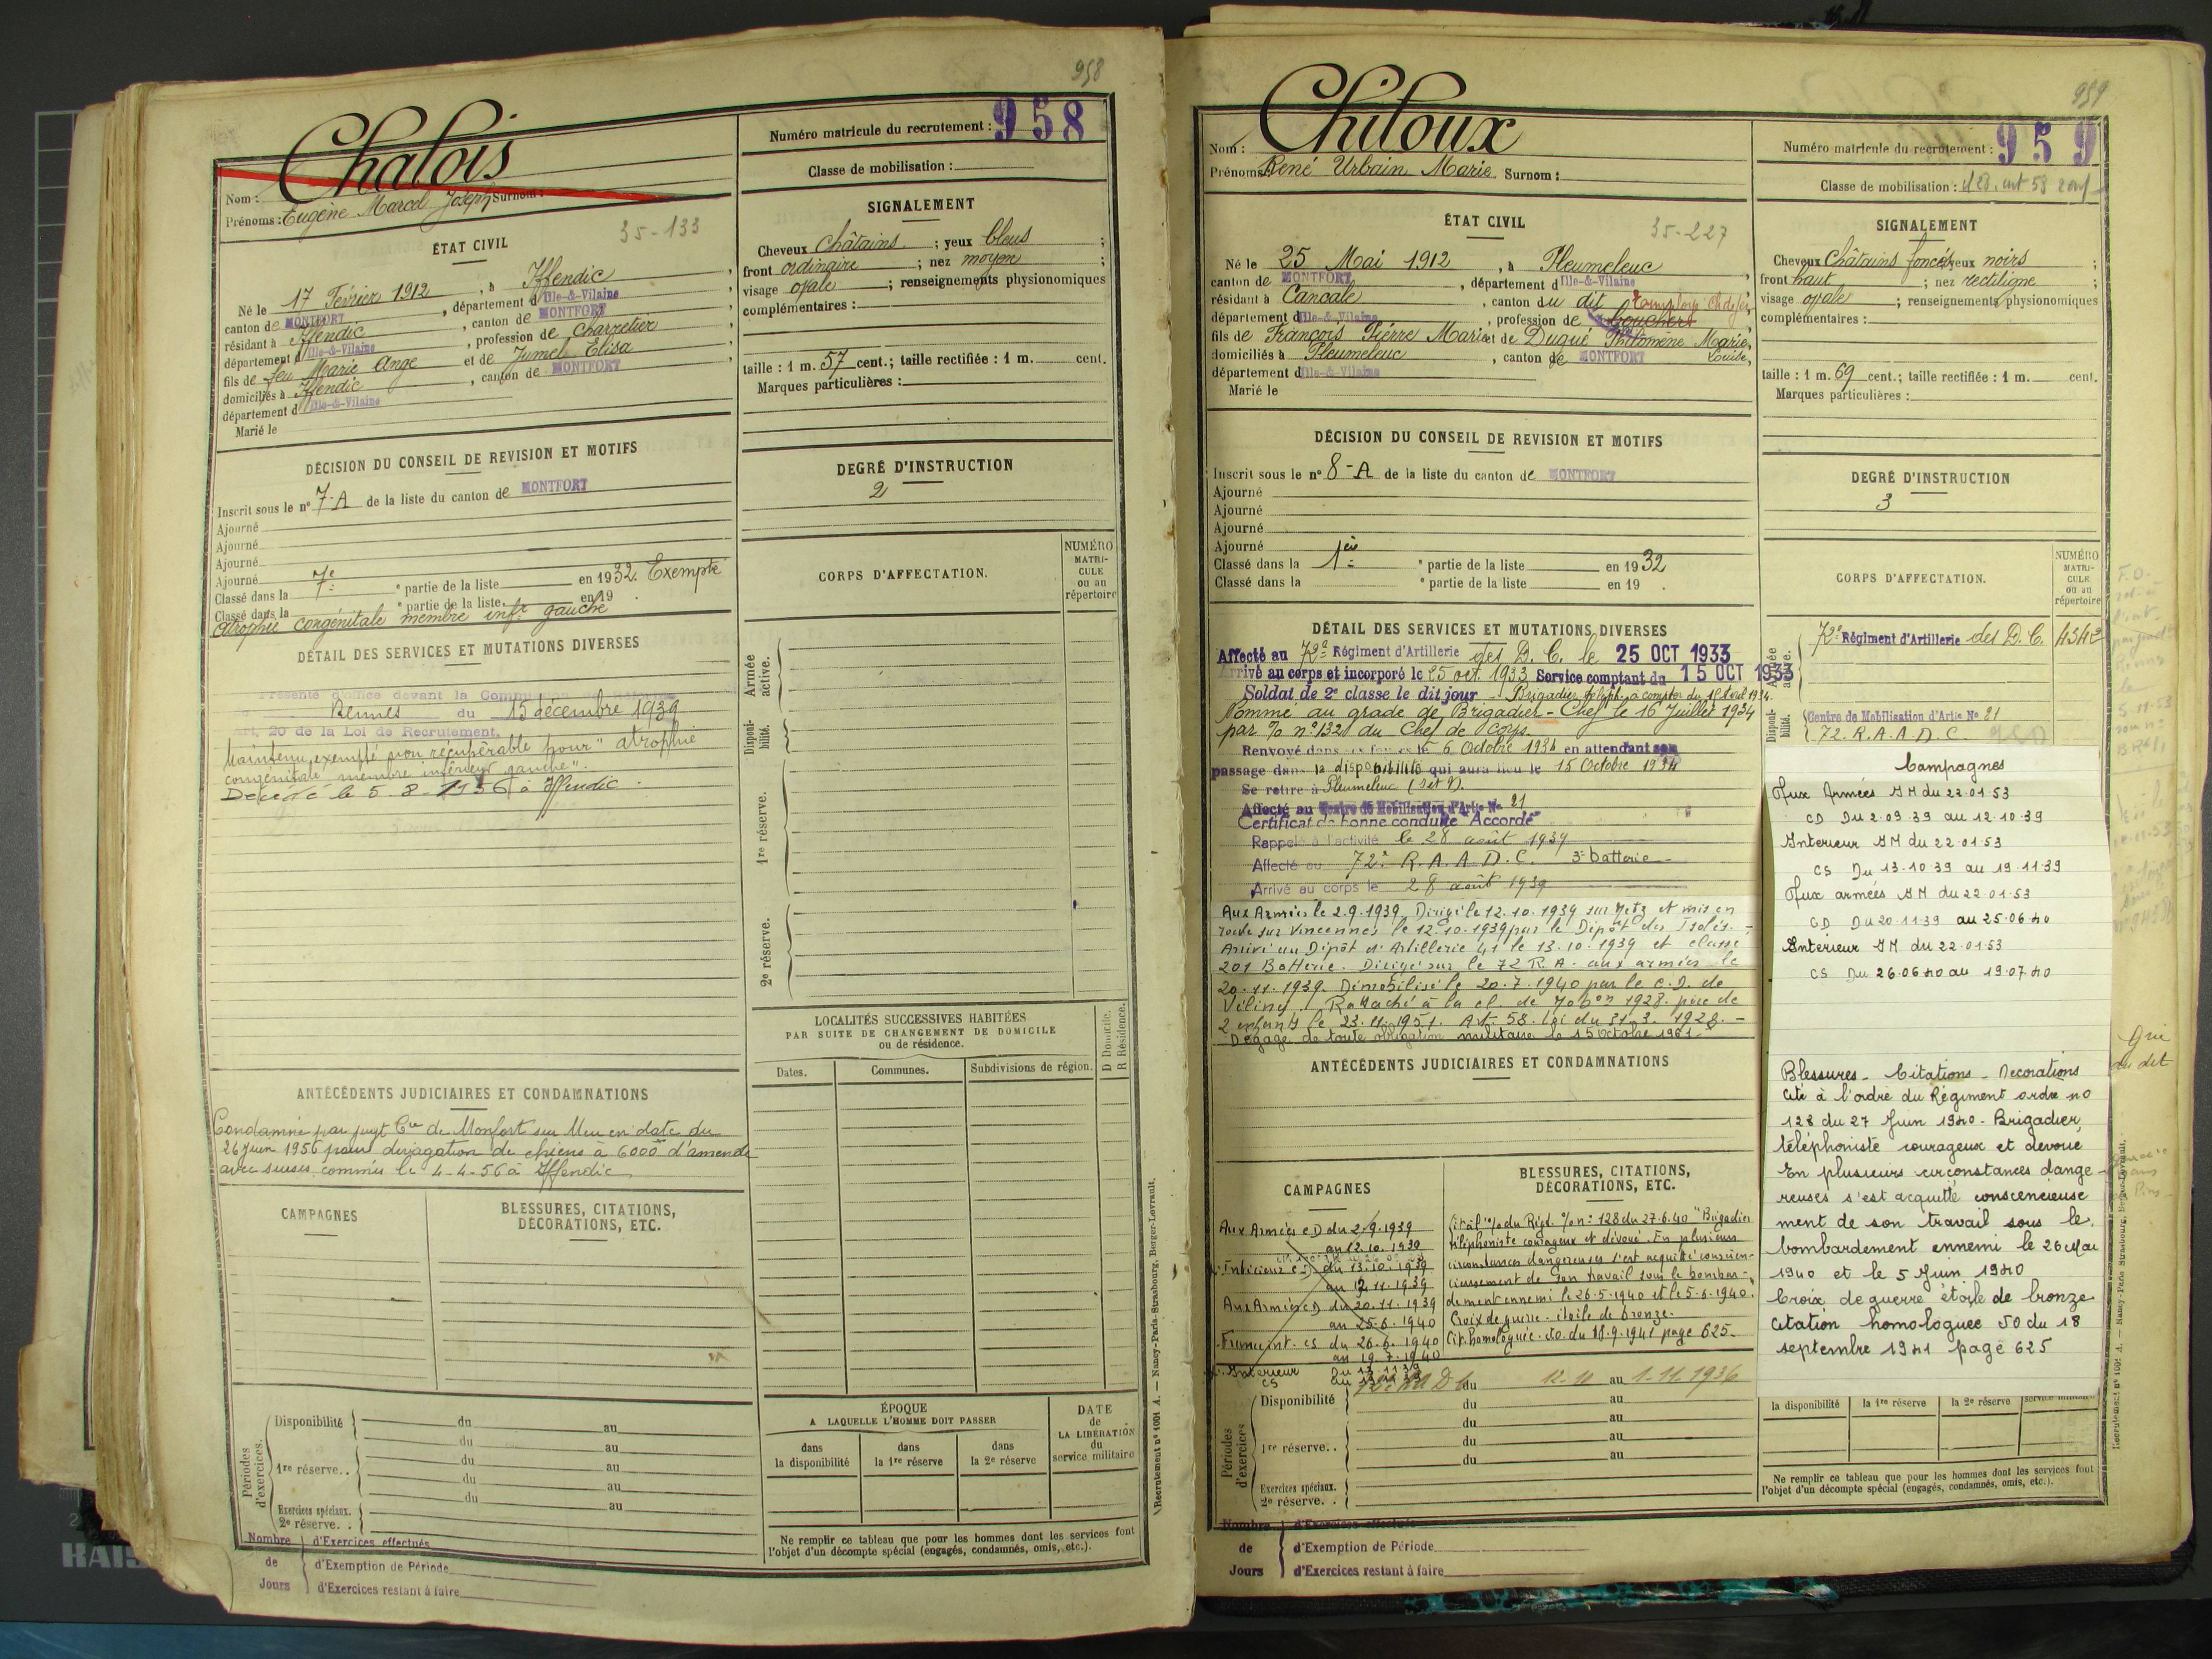 958
Chalois
Nom :
Prénoms : Eugène Marcel Joseph Surnom :
Numéro matricule du recrutement : 958
Classe de mobilisation :
ÉTAT CIVIL
35-133
Né le 17 Février 1912, à Iffendic
canton de MONTFORT, département d'Ille-&-Vilaine
résidant à Iffendic, canton de MONTFORT
département d'Ille-&-Vilaine, profession de charretier
fils de feu Marie Ange et de Jumel Elisa,
domiciliés à Iffendic, canton de MONTFORT
département d'Ille-&-Vilaine
Marié le
SIGNALEMENT
Cheveux châtains ; yeux bleus ;
front ordinaire ; nez moyen ;
visage ovale ; renseignements physionomiques
complémentaires :
taille : 1 m. 57 cent.; taille rectifiée : 1 m. cent.
Marques particulières :
DÉCISION DU CONSEIL DE REVISION ET MOTIFS
Inscrit sous le nº 7-A de la liste du canton de MONTFORT
Ajourné
Ajourné
Ajourné
Ajourné
Classé dans la 7e partie de la liste en 1932. Exempté
Classé dans la partie de la liste en 19
Atrophie congénitale membre infr gauche
DEGRÉ D'INSTRUCTION
2
CORPS D'AFFECTATION.
NUMÉRO MATRICULE ou au répertoire
DÉTAIL DES SERVICES ET MUTATIONS DIVERSES
Présenté d'office devant la
Rennes du 15 décembre 1939
art. 20 de la Loi de Recrutement.
Maintenu exempté non récupérable pour "atrophie
congénitale membre inférieur gauche".
Décédé le 5-8-1956 à Iffendic.
Armée active.
Disponibilité.
1re réserve.
2e réserve.
LOCALITÉS SUCCESSIVES HABITÉES
PAR SUITE DE CHANGEMENT DE DOMICILE
ou de résidence.
Dates.
Communes.
Subdivisions de région.
D Domicile.
R Résidence.
ANTÉCÉDENTS JUDICIAIRES ET CONDAMNATIONS
Condamné par jugt de Monfort sur Meu en date du
26 Juin 1956 pour divagation de chiens à 6000 d'amende
avec sursis commis le 4-4-56 à Iffendic
CAMPAGNES
BLESSURES, CITATIONS,
DÉCORATIONS, ETC.
Périodes d'exercices.
Disponibilité du au
du au
1re réserve.. du au
du au
du au
Exercices spéciaux.
2e réserve. .
ÉPOQUE
A LAQUELLE L'HOMME DOIT PASSER
dans la disponibilité
dans la 1re réserve
dans la 2e réserve
DATE de LA LIBÉRATION du service militaire
Ne remplir ce tableau que pour les hommes dont les services font
l'objet d'un décompte spécial (engagés, condamnés, omis, etc.).
Nombre d'Exercices effectués
de d'Exemption de Période
Jours d'Exercices restant à faire
Recrutement nº 1001 A. — Nancy-Paris-Strasbourg, Berger-Levrault.
959
Chiloux
Nom :
Prénoms : René Urbain Marie Surnom :
Numéro matricule du recrutement : 959
Classe de mobilisation : 28. art 58
ÉTAT CIVIL
35-227
Né le 25 Mai 1912, à Pleumeleuc
canton de MONTFORT, département d'Ille-&-Vilaine
résidant à Cancale, canton du dit
département d'Ille-&-Vilaine, profession de boucher
fils de François Pierre Marie et de Dugué Philomène Marie,
Louise,
domiciliés à Pleumeleuc, canton de MONTFORT
département d'Ille-&-Vilaine
Marié le
SIGNALEMENT
Cheveux Châtains foncés yeux noirs ;
front haut ; nez rectiligne ;
visage ovale ; renseignements physionomiques
complémentaires :
taille : 1 m. 69 cent.; taille rectifiée : 1 m. cent.
Marques particulières :
DÉCISION DU CONSEIL DE REVISION ET MOTIFS
Inscrit sous le nº 8-A de la liste du canton de MONTFORT
Ajourné
Ajourné
Ajourné
Ajourné
Classé dans la 1ère partie de la liste en 1932
Classé dans la partie de la liste en 19 .
DEGRÉ D'INSTRUCTION
3
CORPS D'AFFECTATION.
NUMÉRO MATRICULE ou au répertoire
72e Régiment d'Artillerie des D.C. 4342
Centre de Mobilisation d'Artie No 21
72. R.A.A.D.C.
DÉTAIL DES SERVICES ET MUTATIONS DIVERSES
Affecté au 72e Régiment d'Artillerie des D.C. le 25 OCT 1933
Arrivé au corps et incorporé le 25 oct. 1933 Service comptant du 15 OCT 1933
Soldat de 2e classe le dit jour - Brigadier téléph. à compter du 15 Avril 1934.
Nommé au grade de Brigadier-Chef le 16 Juillet 1934
par % nº 1328 du Chef de Corps.
Renvoyé dans ses foyers le 6 Octobre 1934 en attendant son
passage dans la disponibilité qui aura lieu le 15 Octobre 1934
Se retire à Pleumeleuc (I et V).
Affecté au Centre de Mobilisation d'Artie No 21
Certificat de bonne conduite "Accordé"
Rappelé à l'activité le 28 août 1939
Affecté au 72e R.A.A.D.C. 3e batterie
Arrivé au corps le 28 août 1939
Aux Armées le 2.9.1939. Dirigé le 12.10.1939 sur Metz et mis en
route sur Vincennes le 12.10.1939 par le Dépôt des Isolés.-
Arrivé au Dépôt d'Artillerie 41 le 13.10.1939 et classé
201 Batterie. Dirigé sur le 72 R.A. aux armées le
20.11.1939. Démobilisé le 20.7.1940 par le C.D. de
Véliny. Rattaché à la cl. de mobon 1928. père de
2 enfants le 23.11.1951. Art 58. Loi du 31-3-1928.-
Dégagé de toute obligation militaire le 15 octobre 1961
Campagnes
Aux Armées GM du 22.01.53
CD Du 2.09.39 au 12.10.39
Interieur GM du 22.01.53
CS Du 13.10.39 au 19.11.39
Aux armées GM du 22.01.53
CD Du 20.11.39 au 25.06.40
Interieur GM du 22.01.53
CS Du 26.06.40 au 19.07.40
Blessures - Citations - Decorations
Cité à l'ordre du Régiment ordre no
128 du 27 Juin 1940 - Brigadier
téléphoniste courageux et devoué
En plusieurs circonstances dange-
reuses s'est acquitté consciencieuse
ment de son travail sous le
bombardement ennemi le 26 Mai
1940 et le 5 Juin 1940
Croix de guerre étoile de bronze
Citation homologuée JO du 18
septembre 1941 page 625
ANTÉCÉDENTS JUDICIAIRES ET CONDAMNATIONS
CAMPAGNES
Aux Armées CD du 2.9.1939
au 12.10.1939
Intérieur CS du 13.10.1939
au 12.11.1939
Aux Armées CD du 20.11.1939
au 25.6.1940
CS du 26.6.1940
au 19.7.1940
Intérieur
CS
BLESSURES, CITATIONS,
DÉCORATIONS, ETC.
Cité à l'% du Rigt. % nº 128 du 27.6.40 "Brigadier
téléphoniste courageux et dévoué. En plusieurs
circonstances dangereuses s'est acquitté conscien-
cieusement de son travail sous le bombar-
dement ennemi le 26.5.1940 et le 5.6.1940.
Croix de guerre - étoile de bronze.
Cit. homologuée J.O. du 18.9.1941 page 625.
Périodes d'exercices
Disponibilité du 12-11 au 1-11-1936
du au
du au
1re réserve.. du au
du au
Exercices spéciaux.
2e réserve. .
la disponibilité
la 1re réserve
la 2e réserve
service militaire
Ne remplir ce tableau que pour les hommes dont les services font
l'objet d'un décompte spécial (engagés, condamnés, omis, etc.).
Nombre d'Exercices effectués
de d'Exemption de Période
Jours d'Exercices restant à faire
Recrutement nº 1001 A. — Nancy-Paris-Strasbourg, Berger-Levrault.